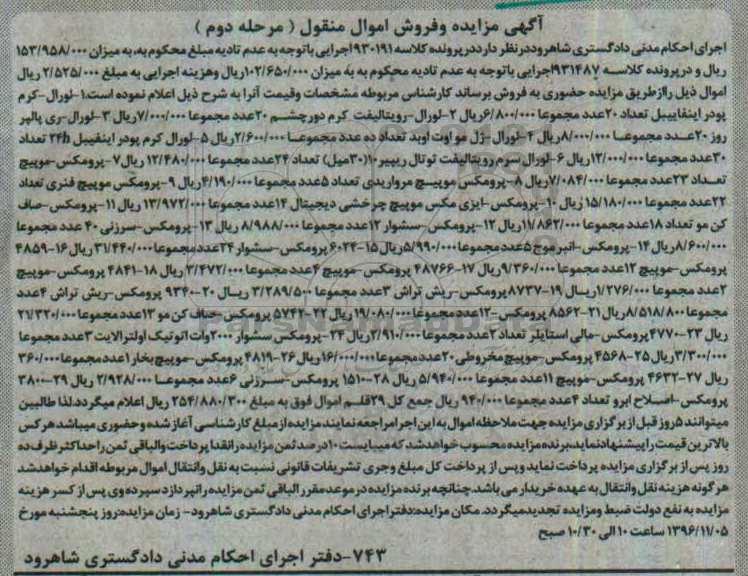 آگهی مزایده وفروش اموال منقول ( مرحله دوم )
اجرای احکام مدنی دادگستری شاهروددرنظر دارددرپرونده کلاسه ۹۳۰۱۹۱اجرایی باتوجه به عدم تادیه مبلغ محکوم به،به میزان ۱۵۳/۹۵۸/۰۰۰
ریال و درپرونده کلاسه ۹۳۱۴۸۷اجرایی باتوجه به عدم تادیه محکوم به به میزان ۱۰۲/۶۵۰/۰۰۰ریال وهزینه اجرایی به مبلغ ۲/۵۲۵/۰۰۰ ریال
اموال ذیل راازطریق مزایده حضوری به فروش برساند کارشناس مربوطه مشخصات وقیمت آنرا به شرح ذیل اعلام نموده است:۱-لورال-کرم
پودر اینفایبل تعداد ۲۰عدد مجموعا ۶/۸۰۰/۰۰۰ریال ۲-لورال-رویتالیفت کرم دورچشم ۲۰عدد مجموعا ۷/۰۰۰/۰۰۰ریال ۳-لورال-ری پالپر
روز ۲۰عدد مجموعا ۸/۰۰۰/۰۰۰ریال ۴-لورال-ژل مو اوت اوبد تعداد ده عدد مجموعا ۲/۶۰۰/۰۰۰ریال ۵-لورال کرم پودر اینفیبل ۲۴h تعداد
۳۰عدد مجموعا ۱۲/۰۰۰/۰۰۰ریال ۶-لورال سرم رویتالیفت توتال ریپیر۱۰(۳۰میل) تعداد ۲۴عدد مجموعا ۱۲/۴۸۰/۰۰۰ ریال ۷-پرومکس-موپیچ
تعداد ۲۳عدد مجموعا ۷/۰۸۴/۰۰۰ریال ۸-پرومکس موپیچ مرواریدی تعداد ۵عدد مجموعا ۴/۱۹۰/۰۰۰ریال ۹-پرومکس موپیچ فنری تعداد
۲۲عدد مجموعا ۱۵/۱۸۰/۰۰۰ریال ۱۰-پرومکس-ایزی مکس موپیچ چرخشی دیجیتال ۱۴عدد مجموعا ۱۳/۹۷۲/۰۰۰ریال ۱۱-پرومکس-صاف
کن مو تعداد ۱۸عدد مجموعا ۱۱/۸۶۲/۰۰۰ریال ۱۲-پرومکس-سشوار ۱۲عدد مجموعا ۸/۹۸۸/۰۰۰ ریال ۱۳-پرومکس-سرزنی ۴۰ عدد مجموعا
۸/۶۰۰/۰۰۰ریال ۱۴-پرومکس-انبرموج ۵عدد مجموعا ۵/۹۹۰/۰۰۰ریال ۱۵-۶۰۲۴ پرومکس-سشوار ۲۴عدد مجموعا ۳۱/۴۴۰/۰۰۰ریال ۱۶-۴۸۵۹
پرومکس-موپیچ ۱۲عدد مجموعا ۹/۳۶۰/۰۰۰ریال ۱۷-۴۸۷۶۶ پرومکس-موپیچ ۴عدد مجموعا ۳/۴۷۲/۰۰۰ ریال ۱۸-۴۸۴۱ پرومکس-موپیچ
۲عدد مجموعا ۱/۲۷۶/۰۰۰ریال ۱۹-۸۷۳۷ پرومکس-ریش تراش ۳عدد مجموعا ۳/۲۸۹/۵۰۰ ریال ۲۰-۹۳۴۰ پرومکس-ریش تراش ۴عدد
مجموعا ۸/۵۱۸/۸۰۰ریال ۲۱-۸۵۶۲ پرومکس-۱۲عدد مجموعا ۱۹/۰۸۰/۰۰۰ریال ۲۲-۵۷۴۲ پرومکس-صاف کن مو ۱۳عدد مجموعا ۲۱/۳۲۰/۰۰۰
ریال ۲۳-۴۷۷۰ پرومکس-مالی استایلر تعداد ۲عدد مجموعا ۲/۹۱۰/۰۰۰ریال ۲۴-پرومکس سشوار ۲۰۰۰وات اتوتیک اولترالایت ۳عدد مجموعا
۳/۳۰۰/۰۰۰ریال ۲۵-۴۵۶۸ پرومکس-موپیچ مخروطی ۲۰عدد مجموعا ۱۶/۰۰۰/۰۰۰ریال ۲۶-۴۸۱۹ پرومکس-موپیچ بخار۱عدد مجموعا ۳۶۰/۰۰۰
ریال ۲۷-۴۶۳۲ پرومکس-موپیچ ۱۱عدد مجموعا ۵/۹۴۰/۰۰۰ ریال ۲۸-۱۵۱۰ پرومکس-سرزنی ۶عدد مجموعا ۲/۹۲۸/۰۰۰ ریال ۲۹-۳۸۰۰
پرومکس-اصلاح ابرو تعداد ۴عدد مجموعا ۹۴۰/۰۰۰ ریال جمع کل ۲۹قلم اموال فوق به مبلغ ۲۵۴/۸۸۰/۳۰۰ ریال اعلام میگردد.لذا طالبین
میتوانند ۵روز قبل از برگزاری مزایده جهت ملاحظه اموال به این اجرا مراجعه نمایند.مزایده از مبلغ کارشناسی آغاز شده وحضوری میباشد هر کس
بالاترین قیمت را پیشنهاد نماید،برنده مزایده محسوب خواهدشد که میبایست ۱۰درصد ثمن مزایده را نقدا پرداخت والباقی ثمن را حداکثر ظرف ده
روز پس از برگزاری مزایده پرداخت نماید و پس از پرداخت کل مبلغ وجری تشریفات قانونی نسبت به نقل وانتقال اموال مربوطه اقدام خواهدشد
هر گونه هزینه نقل وانتقال به عهده خریدار می باشد.چنانچه برنده مزایده در موعد مقرر الباقی ثمن مزایده را نپردازد سپرده وی پس از کسر هزینه
مزایده به نفع دولت ضبط ومزایده تجدیدمیگردد. مکان مزایده:دفتر اجرای احکام مدنی دادگستری شاهرود- زمان مزایده:روز پنجشنبه مورخ
۱۳۹۶/۱۱/۰۵ ساعت ۱۰ الی ۱۰/۳۰ صبح
۷۴۳-دفتر اجرای احکام مدنی دادگستری شاهرود